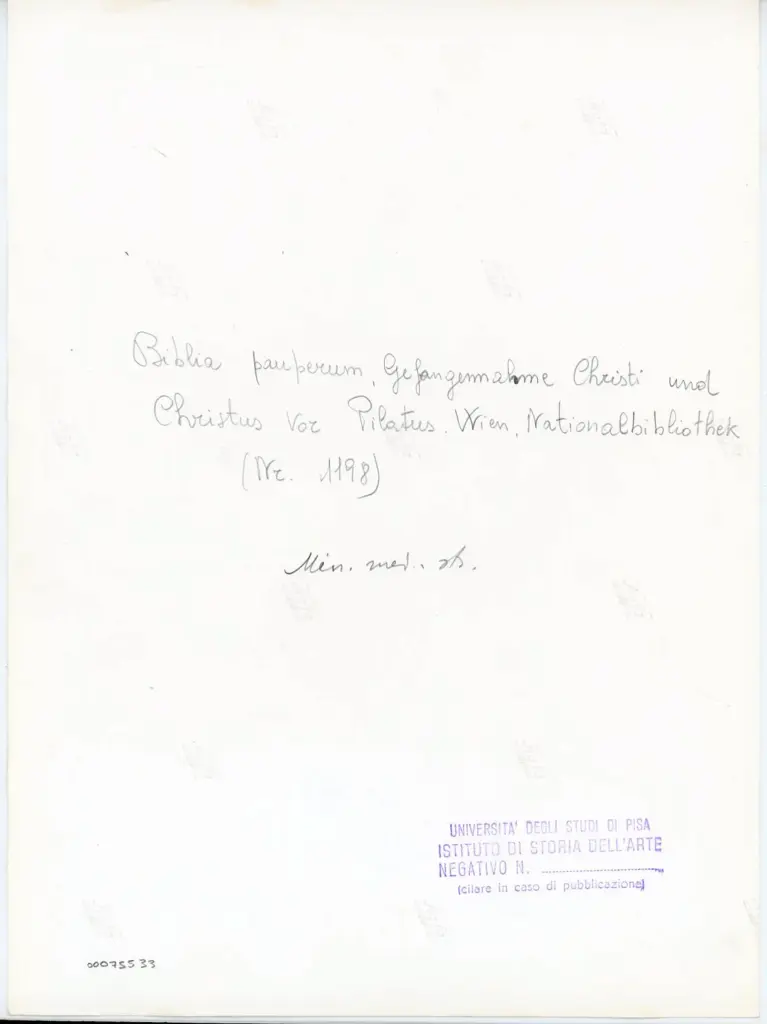 Biblia pauperum, Gefangennahme Christi und
Christus vor Pilatus. Wien, Nationalbibliothek
(Nr. 1198)
Min. med.
UNIVERSITA' DEGLI STUDI DI PISA
ISTITUTO DI STORIA DELL'ARTE
NEGATIVO N. ..............................
(citare in caso di pubblicazione)
00075533